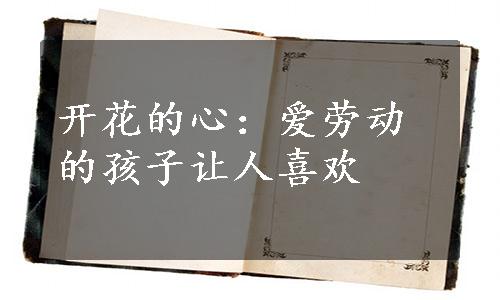 开花的心：爱劳动
的孩子让人喜欢